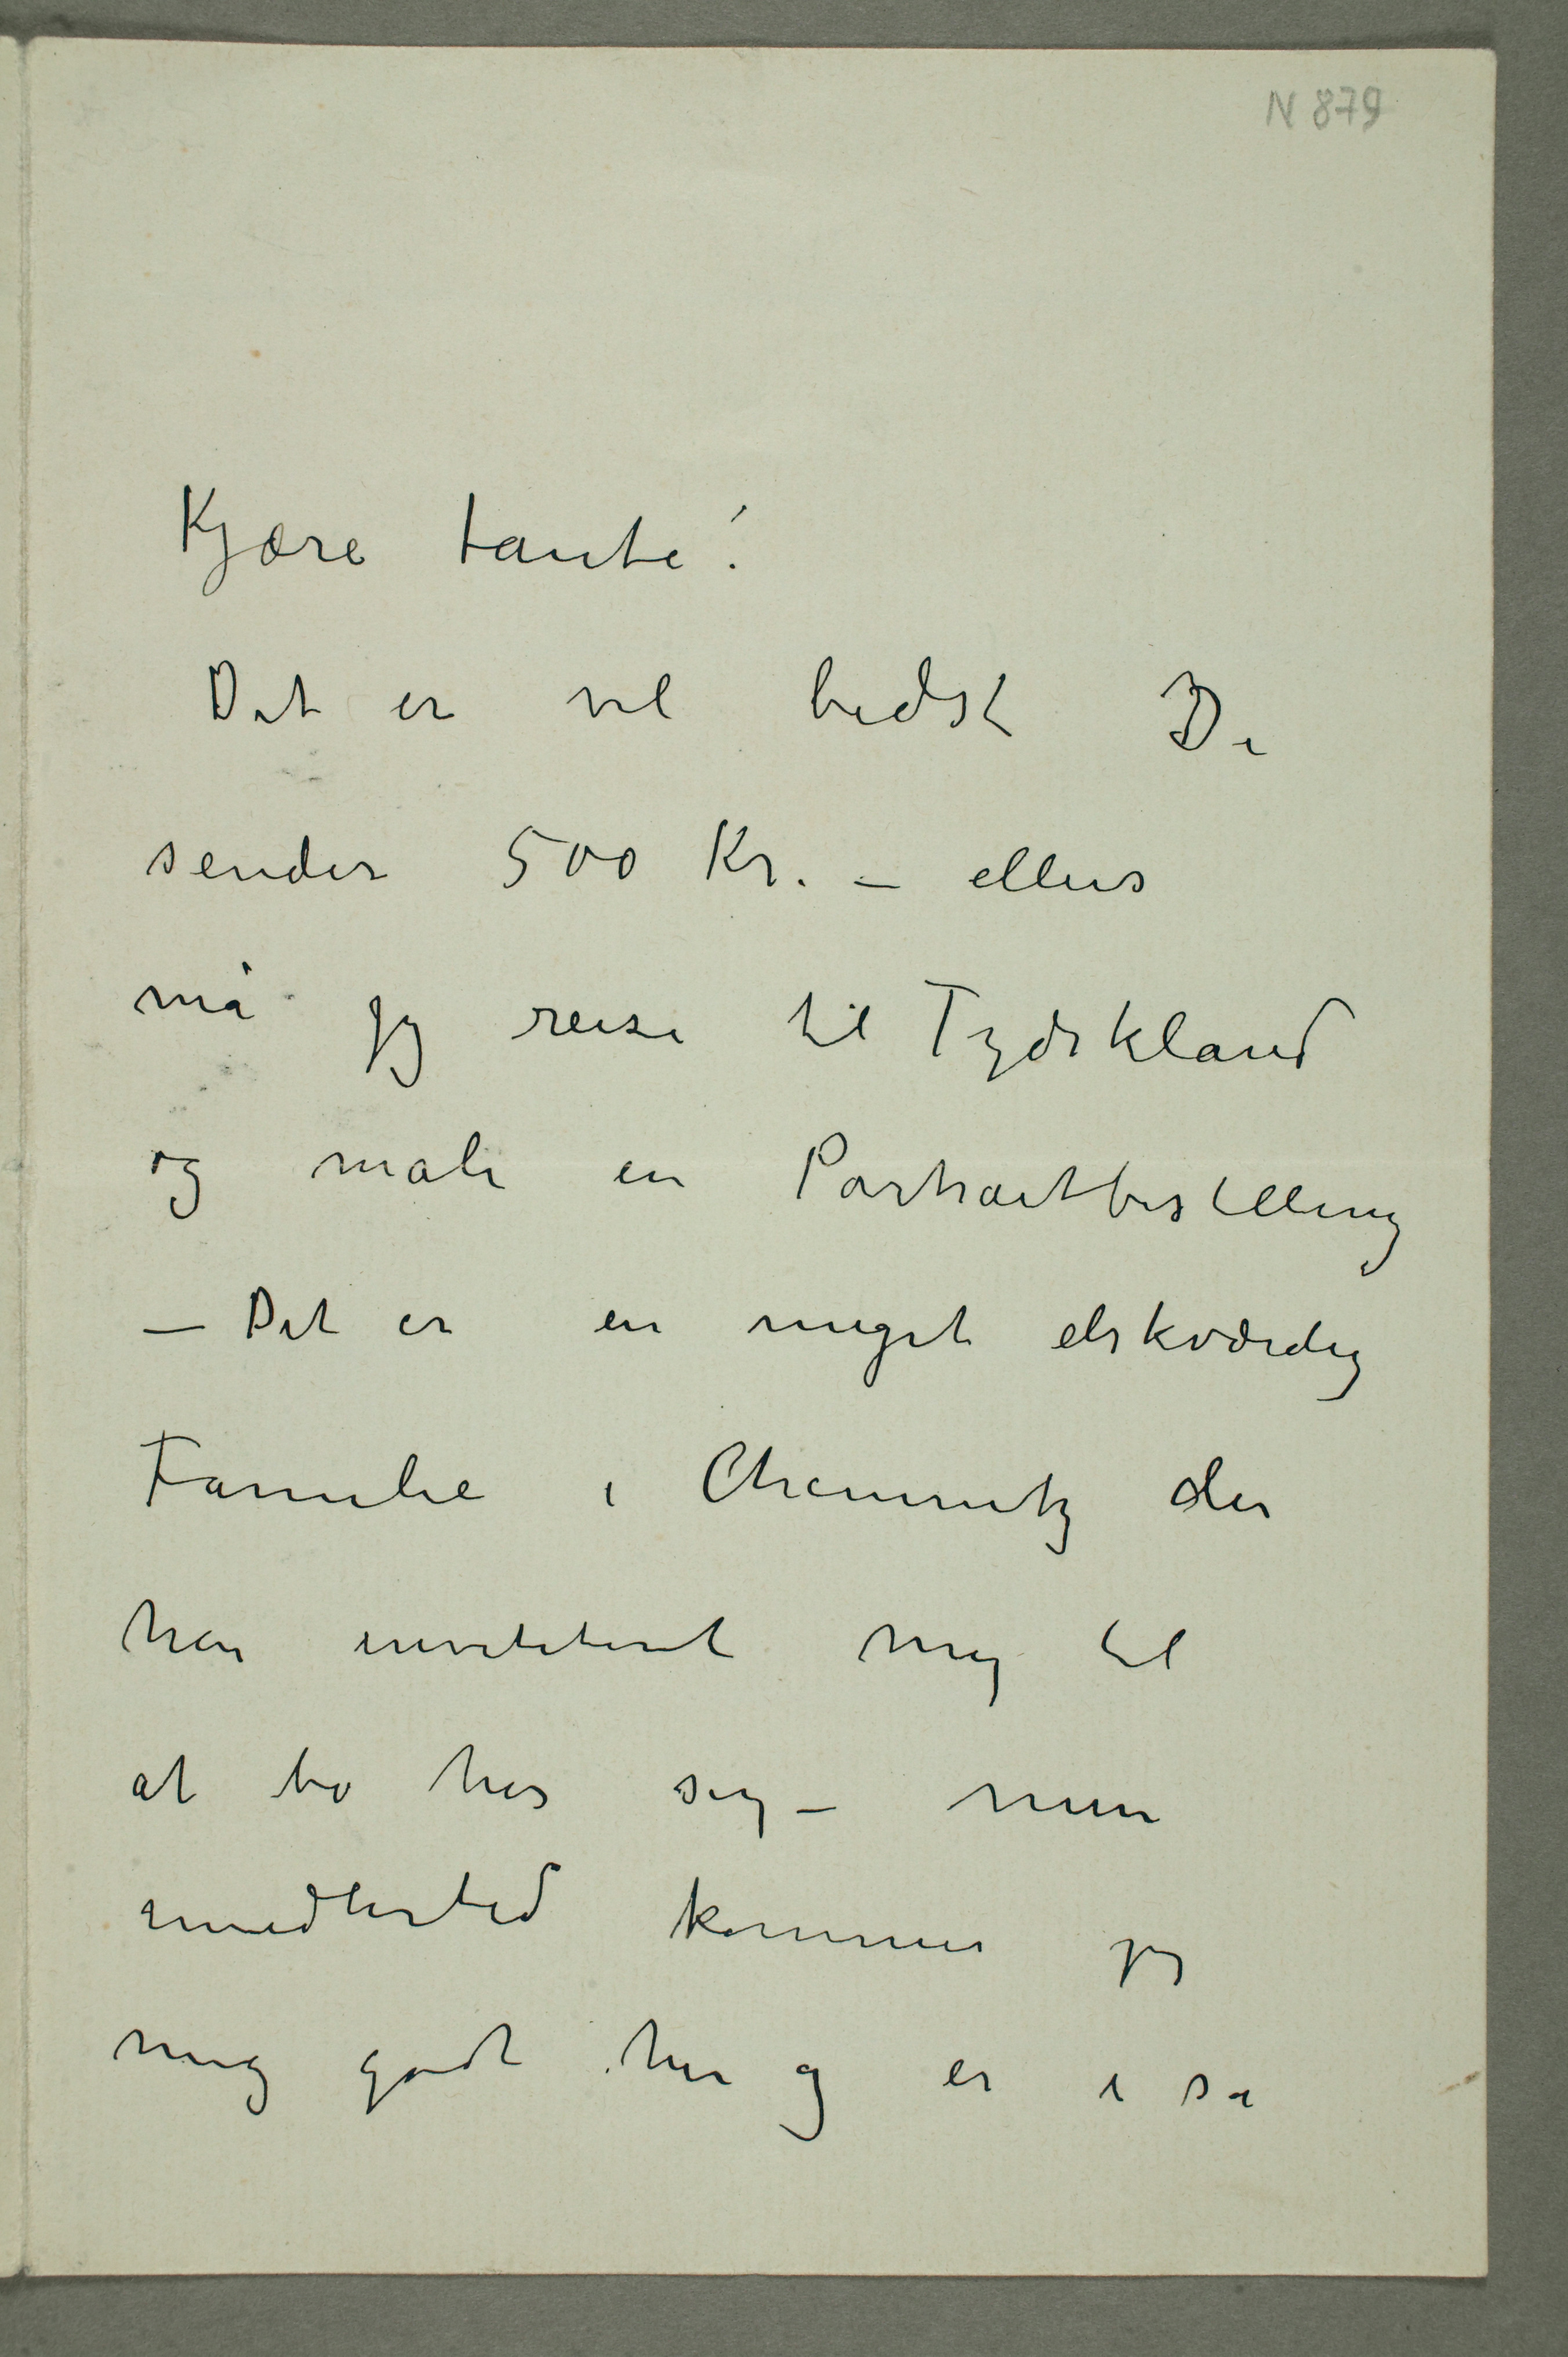 N 879
Kjære tante!
Det er vel bedst De
sender 500 Kr. – ellers
må jeg reise til Tydskland
og male en Portraitbestilling
– Det er en meget elskværdig
Familie i Chemnitz der
har inviteteret mig til
at bo hos sig – men
imidlertid kommer jeg
mig godt her og er i sa